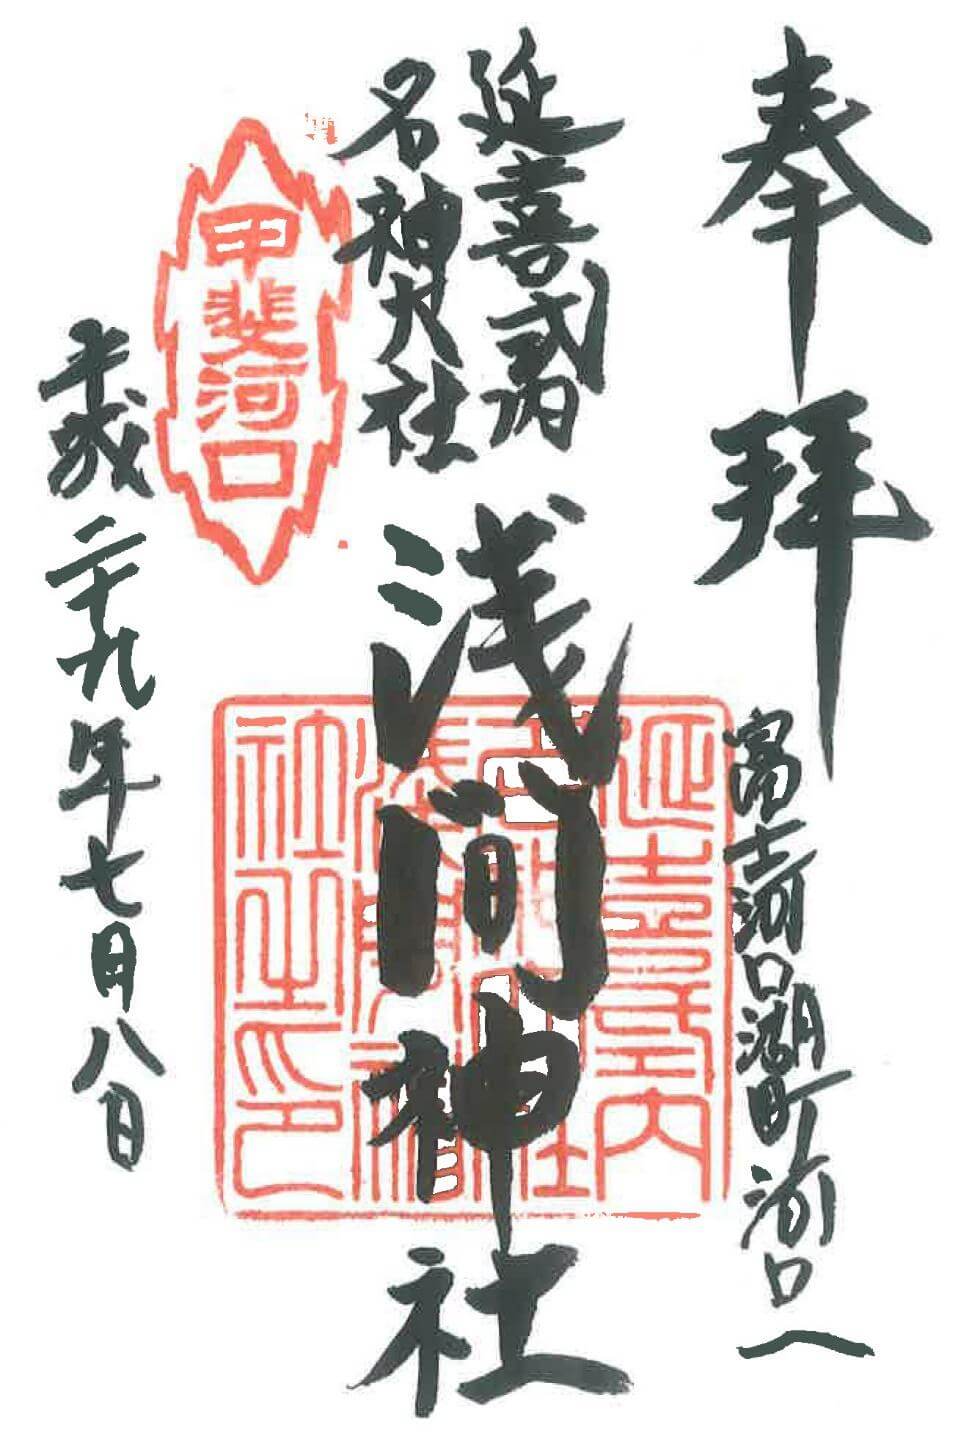 奉拝
富士河口湖町河口一
延喜式内
名神大社
浅間神社
甲斐河口
延喜式内
名神大社
浅間神
社之印
平成二十九年七月八日